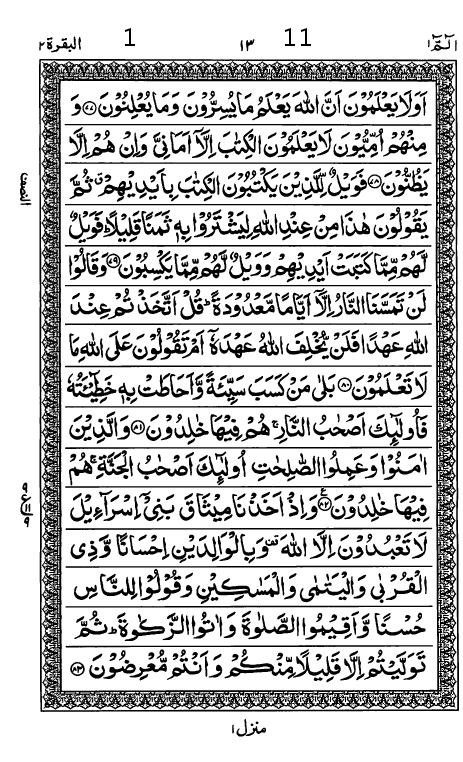 الٓمّٓ ١ 11 ١٣ 1 البقرة ٢
اَوَلَا يَعْلَمُوْنَ اَنَّ اللّٰهَ يَعْلَمُ مَا يُسِرُّوْنَ وَمَا يُعْلِنُوْنَ ﴿۷۷﴾ وَ
مِنْهُمْ اُمِّيُّوْنَ لَا يَعْلَمُوْنَ الْكِتٰبَ اِلَّاۤ اَمَانِيَّ وَاِنْ هُمْ اِلَّا
يَظُنُّوْنَ ﴿۷۸﴾ فَوَيْلٌ لِّلَّذِيْنَ يَكْتُبُوْنَ الْكِتٰبَ بِاَيْدِيْهِمْ ۗ ثُمَّ
يَقُوْلُوْنَ هٰذَا مِنْ عِنْدِ اللّٰهِ لِيَشْتَرُوْا بِهٖ ثَمَنًا قَلِيْلًا ؕ فَوَيْلٌ
لَّهُمْ مِّمَّا كَتَبَتْ اَيْدِيْهِمْ وَوَيْلٌ لَّهُمْ مِّمَّا يَكْسِبُوْنَ ﴿۷۹﴾ وَقَالُوْا
لَنْ تَمَسَّنَا النَّارُ اِلَّاۤ اَيَّامًا مَّعْدُوْدَةً ؕ قُلْ اَتَّخَذْتُمْ عِنْدَ
اللّٰهِ عَهْدًا فَلَنْ يُّخْلِفَ اللّٰهُ عَهْدَهٗۤ اَمْ تَقُوْلُوْنَ عَلَى اللّٰهِ مَا
لَا تَعْلَمُوْنَ ﴿۸۰﴾ بَلٰى مَنْ كَسَبَ سَيِّئَةً وَّاَحَاطَتْ بِهٖ خَطِيْٓئَتُهٗ
فَاُولٰٓئِكَ اَصْحٰبُ النَّارِ ۚ هُمْ فِيْهَا خٰلِدُوْنَ ﴿۸۱﴾ وَالَّذِيْنَ
اٰمَنُوْا وَعَمِلُوا الصّٰلِحٰتِ اُولٰٓئِكَ اَصْحٰبُ الْجَنَّةِ ۚ هُمْ
فِيْهَا خٰلِدُوْنَ ﴿۸۲﴾ وَاِذْ اَخَذْنَا مِيْثَاقَ بَنِيْۤ اِسْرَآءِيْلَ
لَا تَعْبُدُوْنَ اِلَّا اللّٰهَ وَبِالْوَالِدَيْنِ اِحْسَانًا وَّذِي
الْقُرْبٰى وَالْيَتٰمٰى وَالْمَسٰكِيْنِ وَقُوْلُوْا لِلنَّاسِ
حُسْنًا وَّاَقِيْمُوا الصَّلٰوةَ وَاٰتُوا الزَّكٰوةَ ؕ ثُمَّ
تَوَلَّيْتُمْ اِلَّا قَلِيْلًا مِّنْكُمْ وَاَنْتُمْ مُّعْرِضُوْنَ ﴿۸۳﴾
النصف
۹
ع ۱۱
۹
منزل ۱